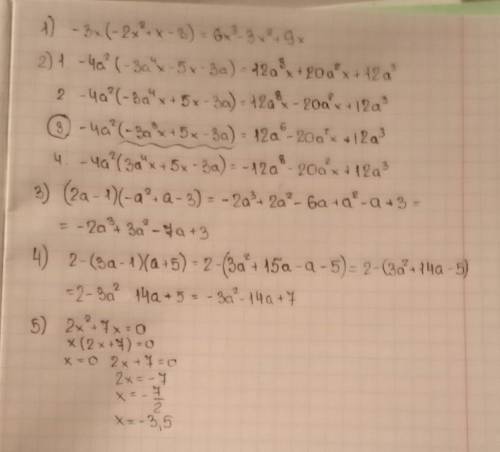 1) -3x(-2x²+x-3)=6x³-3x²+9x
2) 1 -4a²(-3a⁴x-5x-3a)=12a⁸x+20a²x+12a³
2 -4a²(-3a⁴x+5x-3a)=12a⁸x-20a²x+12a³
3 -4a²(-3a³x+5x-3a)=12a⁶-20a²x+12a³
4. -4a²(3a⁴x+5x-3a)=-12a⁸-20a²x+12a³
3) (2a-1)(-a²+a-3)=-2a³+2a²-6a+a²-a+3=
=-2a³+3a²-7a+3
4) 2-(3a-1)(a+5)=2-(3a²+15a-a-5)=2-(3a²+14a-5)
=2-3a² 14a+5=-3a²-14a+7
5) 2x²+7x=0
x(2x+7)=0
x=0 2x+7=0
2x=-7
x=-7/2
x=-3,5